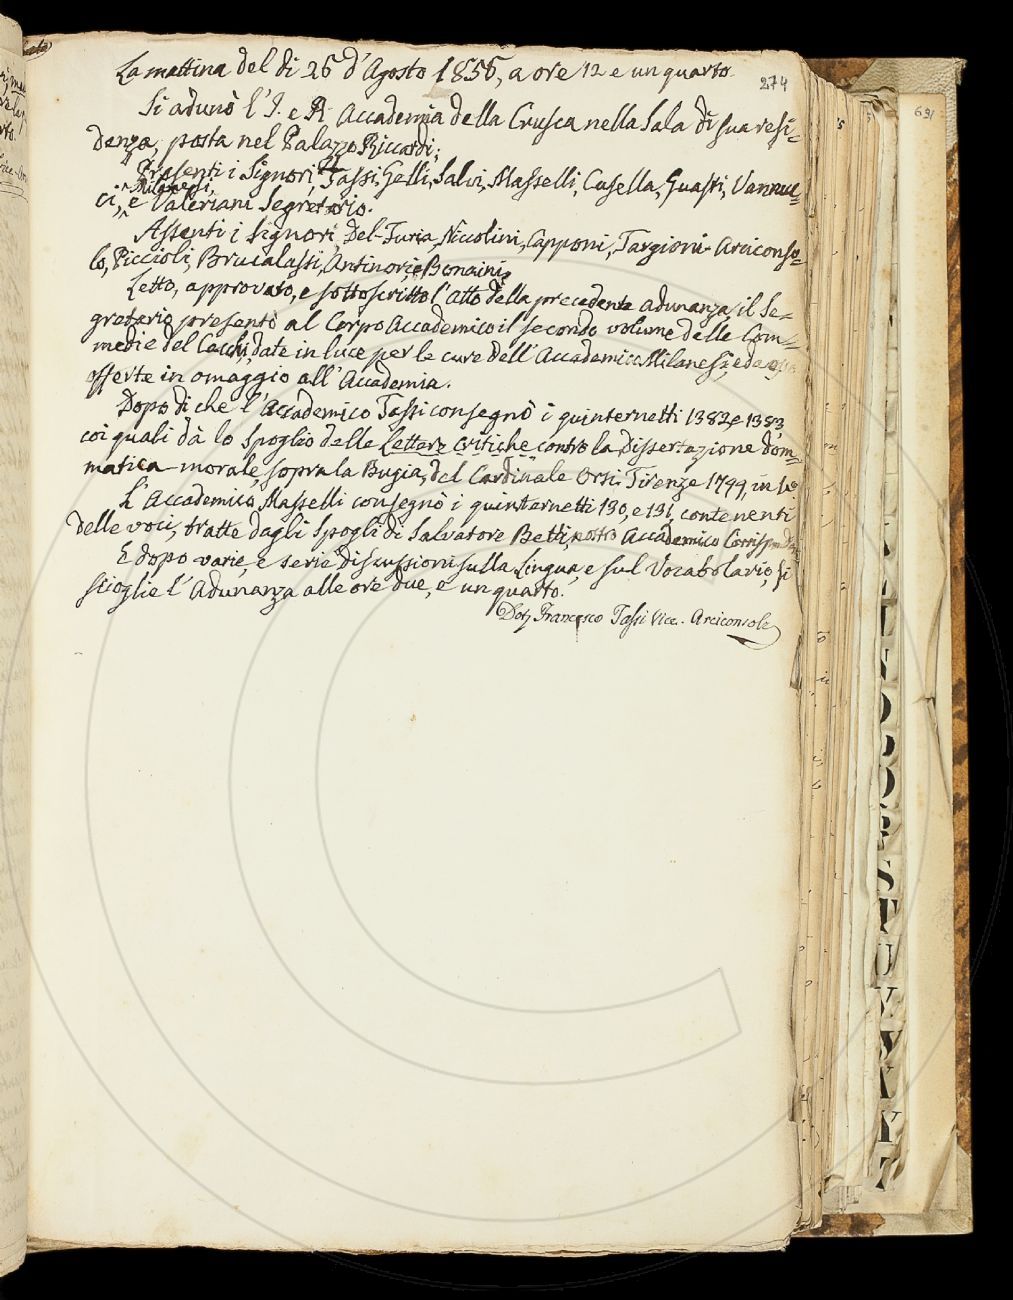 La mattina del dì 26 d'Agosto 1856, a ore 12 e un quarto.
274
Si adunò l'I. e R. Accademia della Crusca nella Sala di sua resi=
denza, posta nel Palazzo Riccardi;
Presenti i Signori, Tassi, Gelli, Salvi, Masselli, Casella, Guasti, Vannuc=
Milanesi,
ci, e Valeriani Segretario.
Assenti i Signori Del-Furia, Niccolini, Capponi, Targioni-Arciconso=
lo, Piccioli, Brucalassi, Antinori, e Bonaini,
Letto, approvato, e sottoscritto l'atto della precedente adunanza, il Se=
gretario presentò al Corpo Accademico il secondo volume delle Com=
medie del Cecchi, date in luce per le cure dell'Accademico Milanesi, e da
offerte in omaggio all'Accademia.
Dopo di che l'Accademico Tassi consegnò i quinternetti 1382, e 1383,
coi quali dà lo spoglio delle Lettere critiche contro la Dissertazione dom=
matica-morale, sopra la Bugia, del Cardinale Orsi. Firenze 1744, in
L'Accademico Masselli consegnò i quinternetti 130, e 131, contenenti
delle voci, tratte dagli Spogli di Salvatore Betti, nostro Accademico
E dopo varie, e serie discussioni sulla Lingua, e sul Vocabolario, si
scioglie l'Adunanza alle ore due, e un quarto.
Dott. Francesco Tassi Vice-Arciconsolo
691
S
T
U
V
W
X
Y
Z